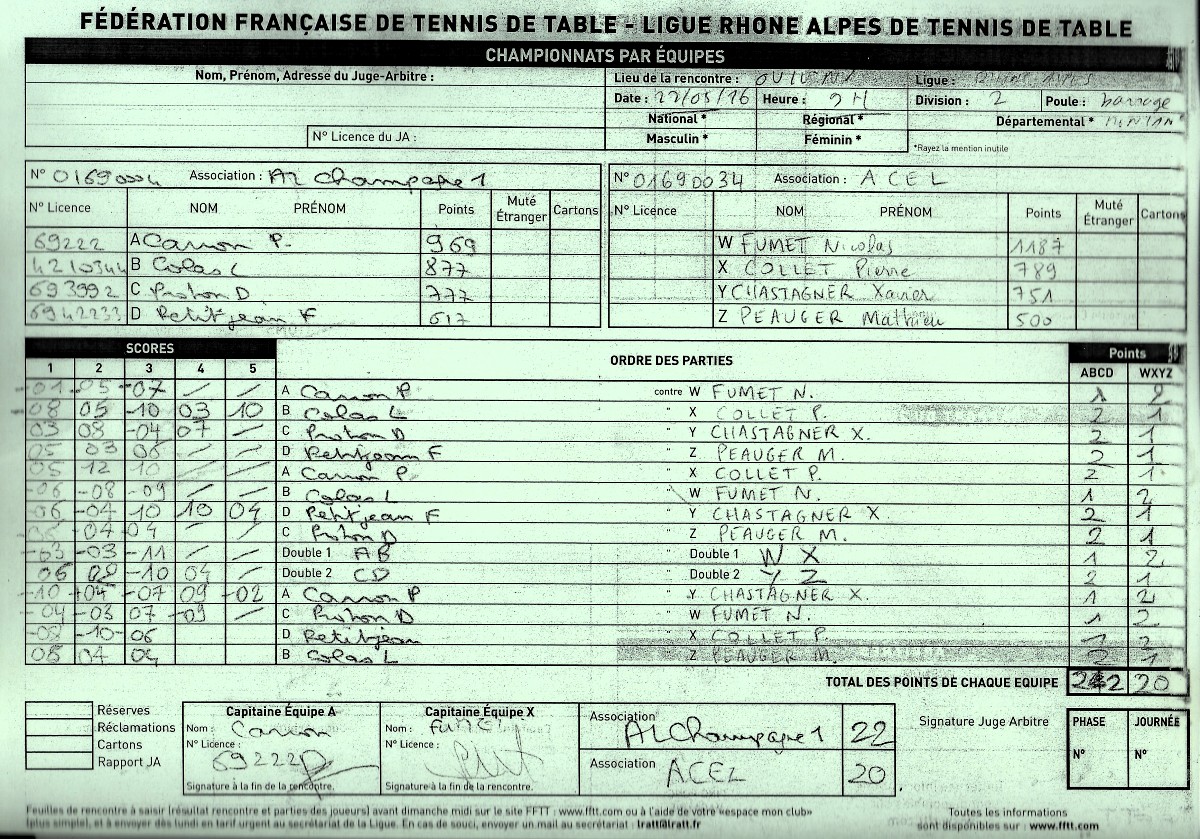 FÉDÉRATION FRANÇAISE DE TENNIS DE TABLE - LIGUE RHONE ALPES DE TENNIS DE TABLE
CHAMPIONNATS PAR ÉQUIPES
Nom, Prénom, Adresse du Juge-Arbitre :
Lieu de la rencontre : Ligue :
Date : 22/05/16 Heure : 9H Division : 2 Poule : barrage
National * Régional * Départemental *
N° Licence du JA : Masculin * Féminin * *Rayez la mention inutile
N° 01690004 Association : AL Champagne 1 N° 01690034 Association : ACEL
N° Licence NOM PRÉNOM Points Muté Étranger Cartons N° Licence NOM PRÉNOM Points Muté Étranger Cartons
69222 A Carron P. 969 W FUMET Nicolas 1187
4210344 B Colas L 877 X COLLET Pierre 789
693992 C Proton D 777 Y CHASTAGNER Xavier 751
6942233 D Petitjean F 617 Z PEAUGER Mathieu 500
SCORES ORDRE DES PARTIES Points
1 2 3 4 5 ABCD WXYZ
-01 -05 -07 / / A Carron P contre W FUMET N. 1 2
-08 05 -10 03 10 B Colas L " X COLLET P. 2 1
03 08 -04 07 / C Proton D " Y CHASTAGNER X. 2 1
05 03 06 / / D Petitjean F " Z PEAUGER M. 2 1
05 12 10 / / A Carron P. " X COLLET P. 2 1
-06 -08 -09 / / B Colas L " W FUMET N. 1 2
-06 -04 10 10 04 D Petitjean F " Y CHASTAGNER X 2 1
04 04 / / C Proton D " Z PEAUGER M. 2 1
-03 -03 -11 / / Double 1 AB Double 1 W X 1 2
06 -10 04 / Double 2 CD Double 2 Y Z 2 1
-10 -07 09 -02 A Carron P " Y CHASTAGNER X. 1 2
-04 -03 07 -09 / C Proton D " W FUMET N. 1 2
-08 -10 -06 D Petitjean " X COLLET P. 1 2
08 04 04 B Colas L " Z PEAUGER M. 2 1
TOTAL DES POINTS DE CHAQUE ÉQUIPE 22 20
Réserves
Réclamations
Cartons
Rapport JA
Capitaine Équipe A
Nom : Carron
N° Licence :
69222
Signature à la fin de la rencontre.
Capitaine Équipe X
Nom : FUMET
N° Licence :
Signature à la fin de la rencontre.
Association AL Champagne 1 22
Association ACEL 20
Signature Juge Arbitre
PHASE JOURNÉE
N° N°
Feuilles de rencontre à saisir (résultat rencontre et parties des joueurs) avant dimanche midi sur le site FFTT : www.fftt.com ou à l'aide de votre «espace mon club»
(plus simple), et à envoyer dès lundi en tarif urgent au secrétariat de la Ligue. En cas de souci, envoyer un mail au secrétariat : lratt@lratt.fr
Toutes les informations
sont disponibles sur : www.fftt.com